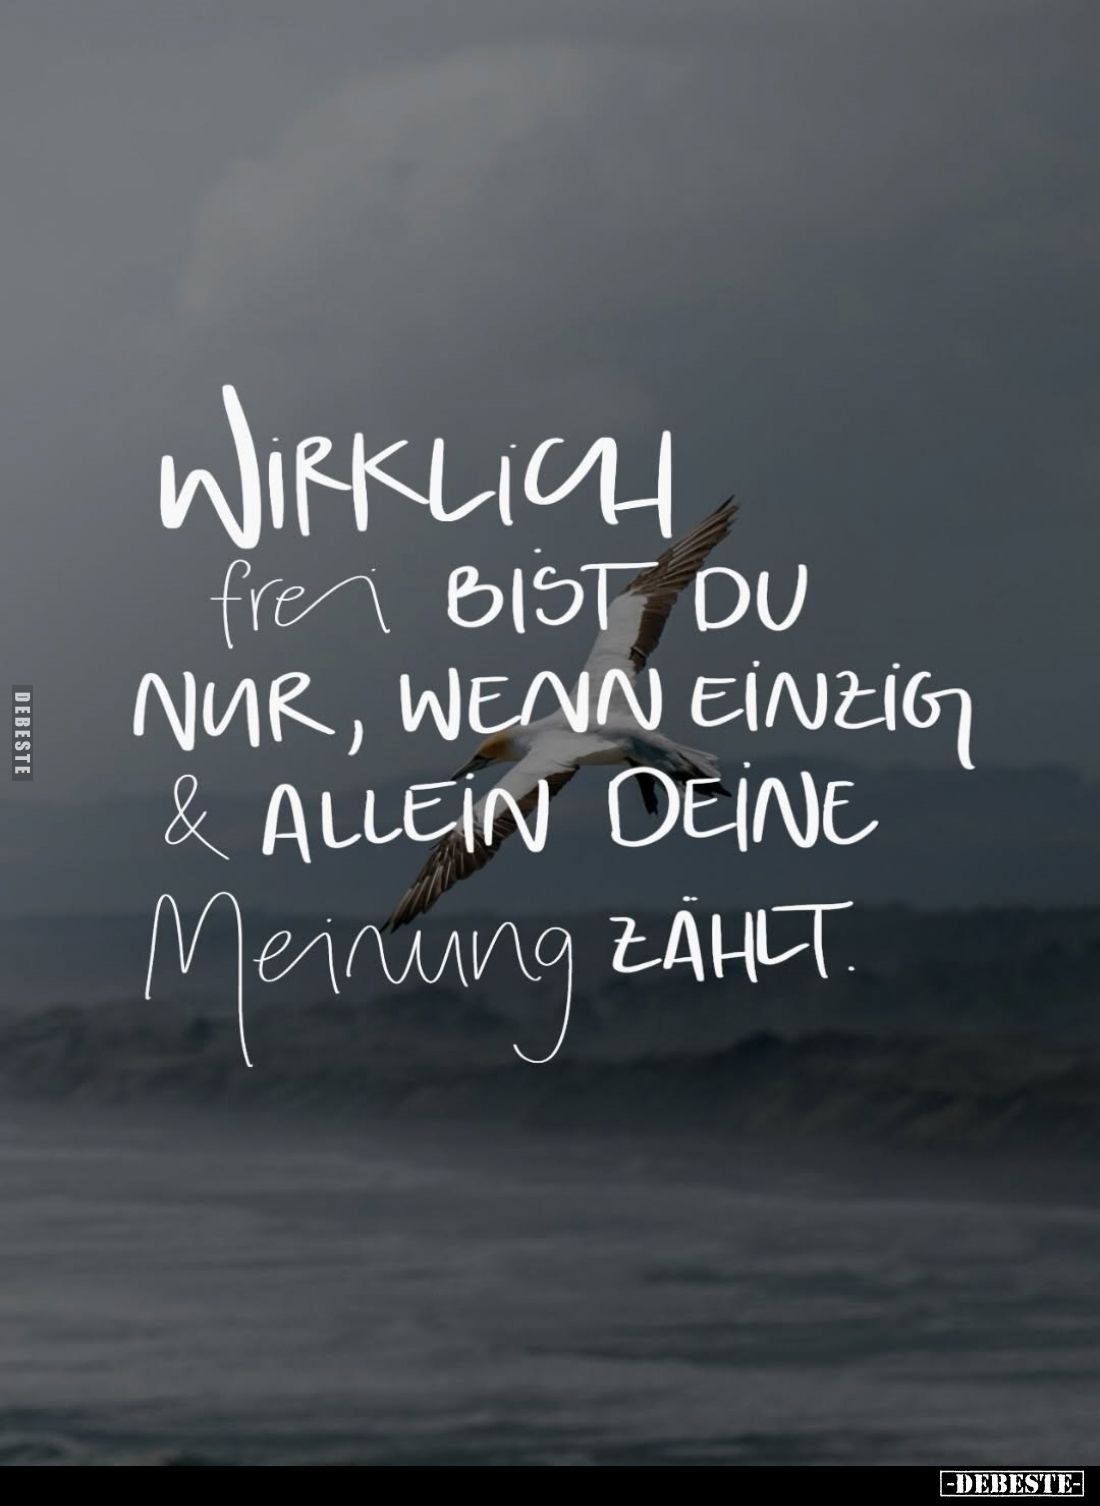 WIRKLICH
frei BIST DU
NUR, WENN EINZIG
& ALLEIN DEINE
Meinung ZÄHLT.
DEBESTE
-DEBESTE-